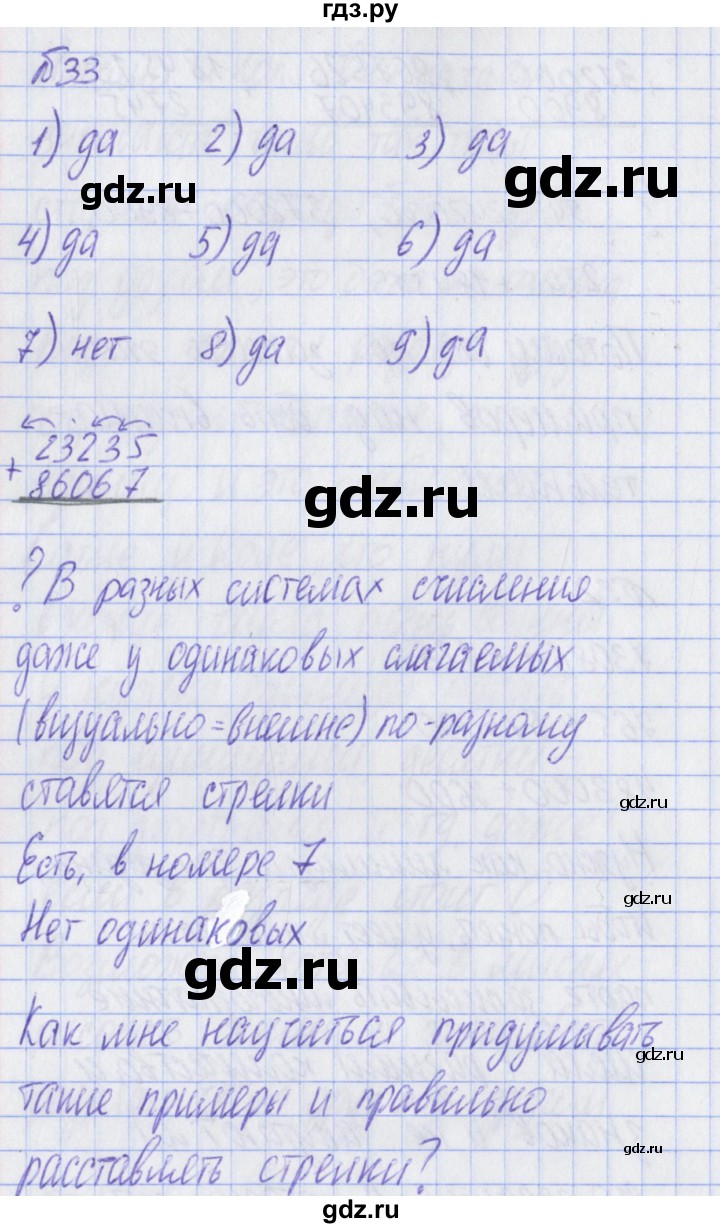 гдз.ру
№33
1) да 2) да 3) да
gdz.ru
gdz.ru
4) да 5) да 6) да
7) нет 8) да 9) да
23235
+
86067
gdz.ru
? В разных системах счисления
даже у одинаковых слагаемых
(визуально = внешне) по-разному
ставятся стрелки
gdz.ru
Есть, в номере 7
gdz.ru
Нет одинаковых
gdz.ru
Как мне научиться придумывать
gdz.ru
такие примеры и правильно
gdz.ru
расставлять стрелки?
gdz.ru